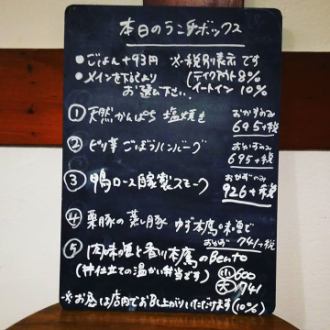 本日のランチボックス
●ごはん+93円 ※税別表示です
●メインを下記より (テイクアウト8%
お選び下さい。 イートイン10%
① 天然かんぱち 塩焼き おかずのみ
695+税
② ピリ辛 ごぼうハンバーグ おかずのみ
695+税
③ 鴨ロース燻製スモーク おかずのみ
926+税
④ 栗豚の蒸し豚 ゆず本鷹味噌で
おかず 741+税
⑤ 肉味噌と香川本鷹のBento
(丼仕立ての温かい弁当です) 小600
大741
※お昼は店内でお召し上がりいただけます(10%)